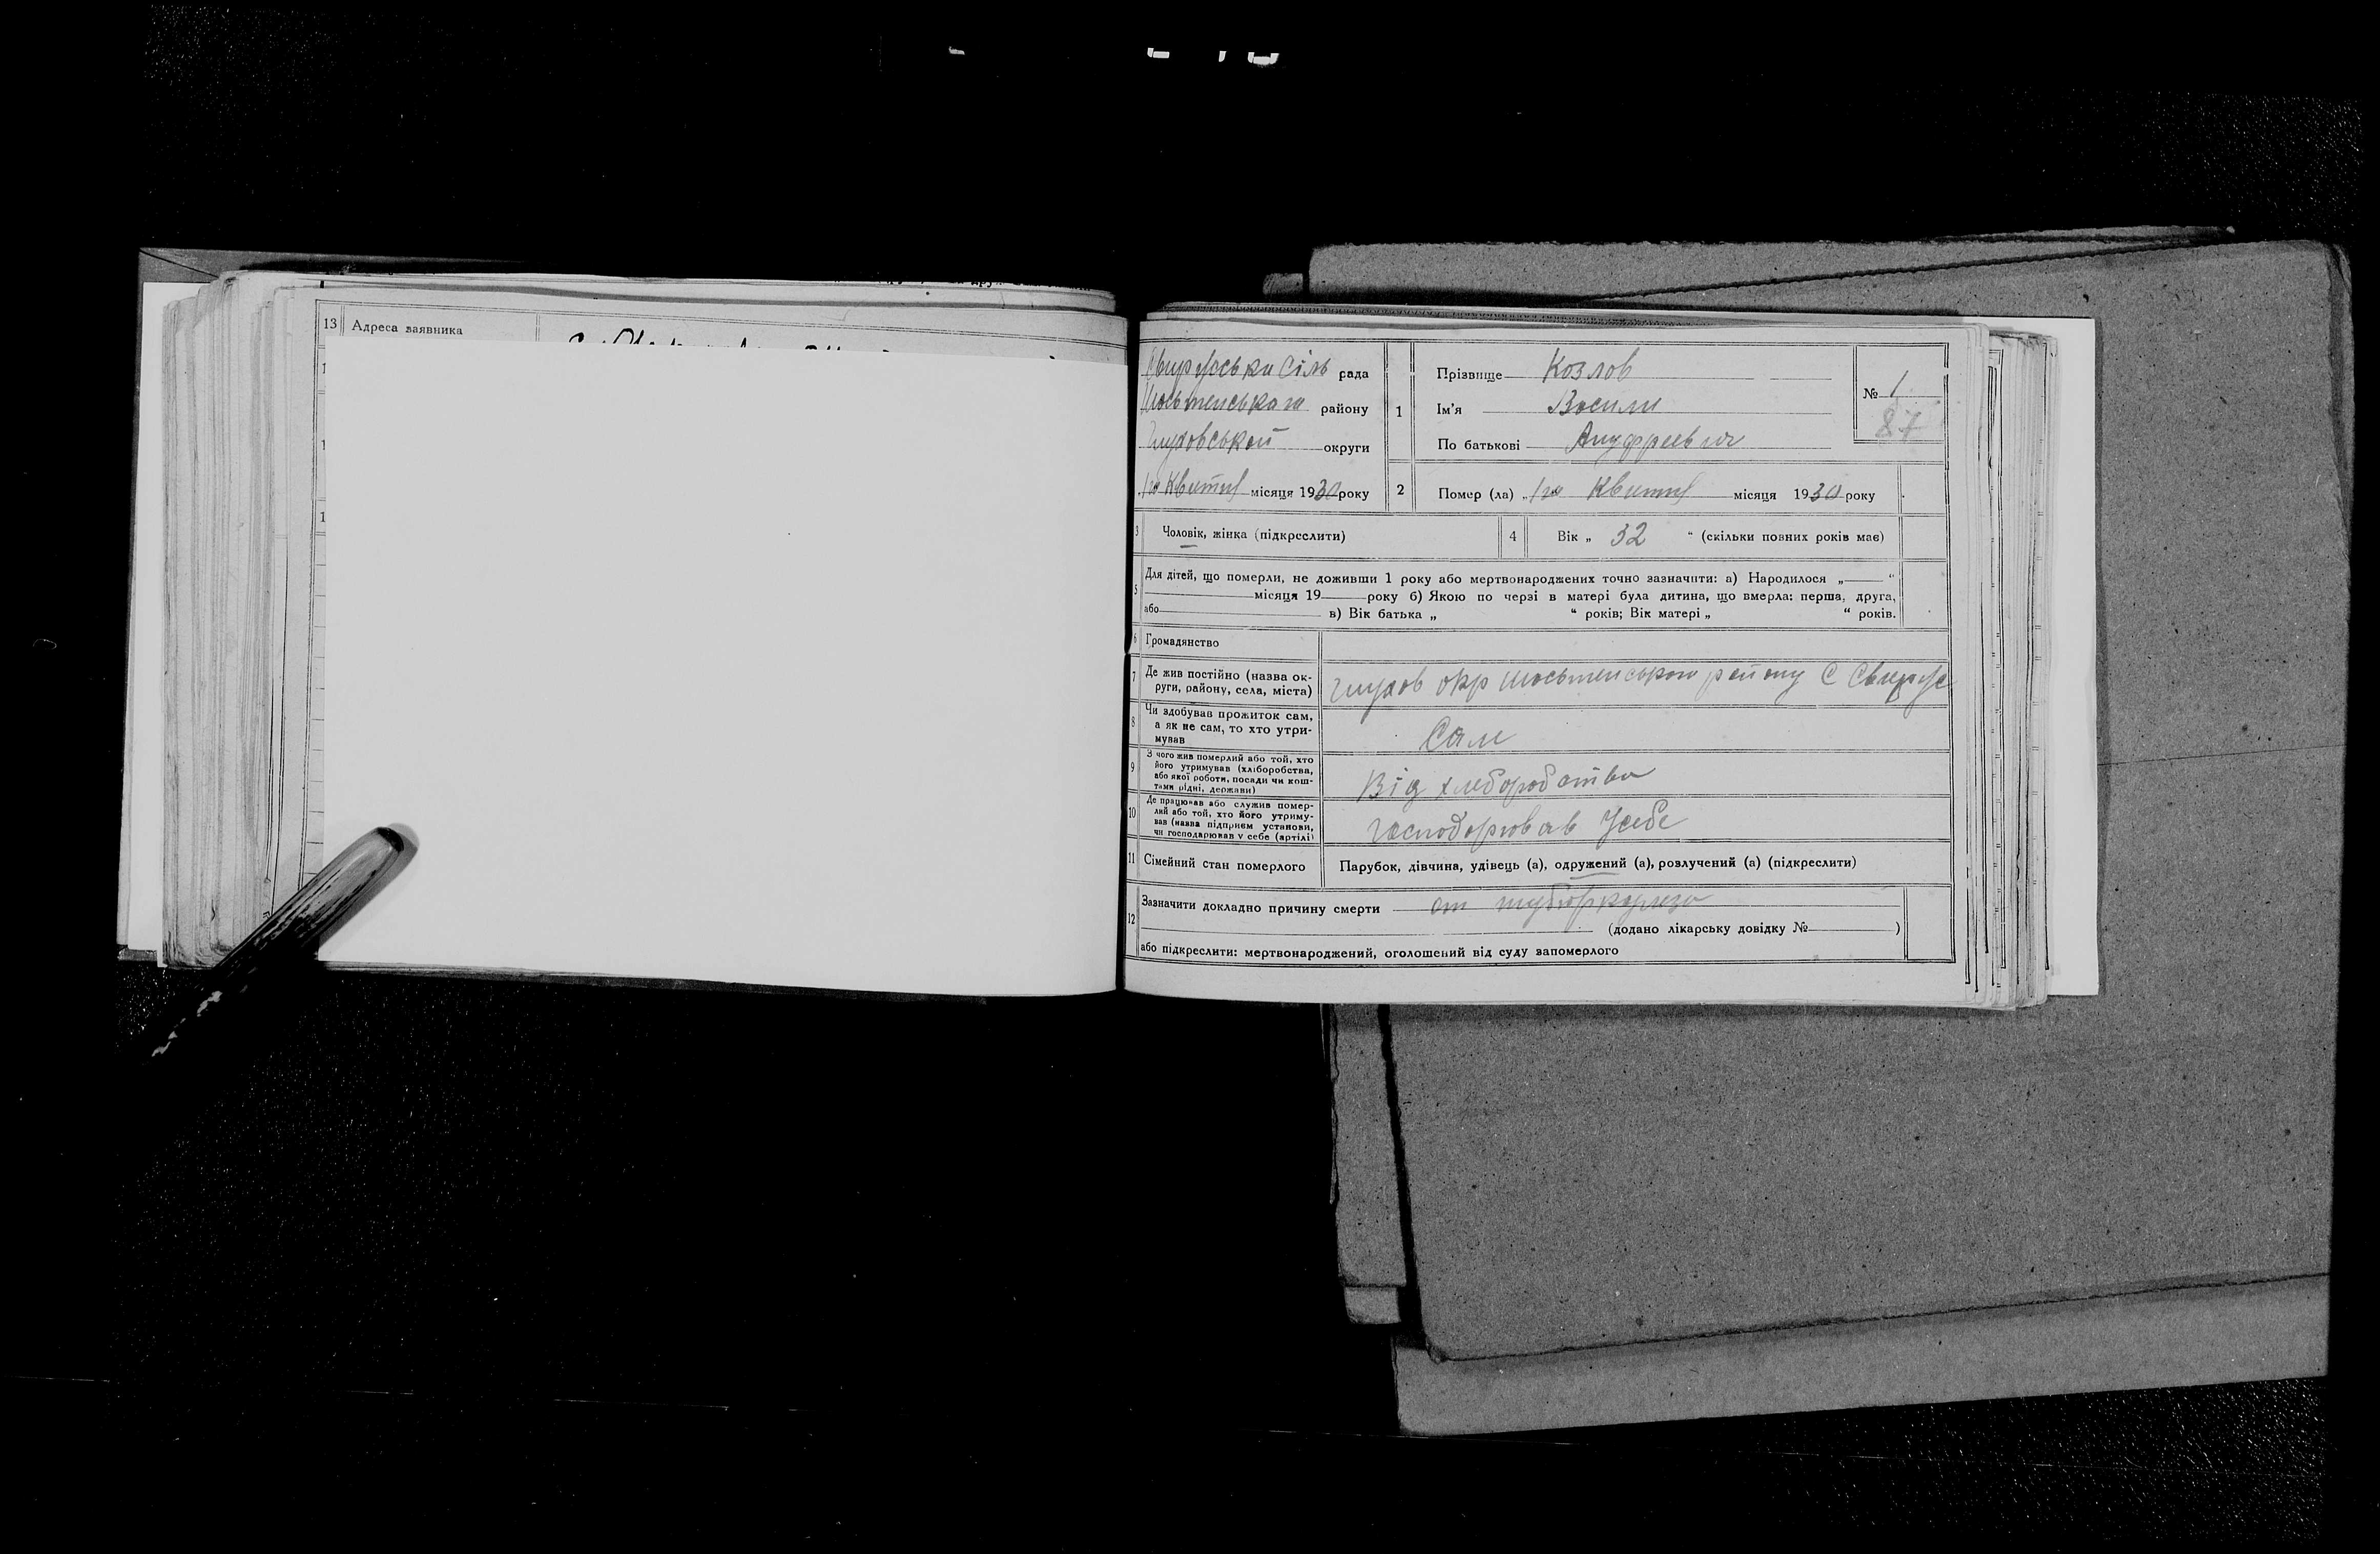 13 Адреса заявника
Свиржська Сіль рада
Шостенського району
Глуховської округи
1го Квітня місяця 1930 року
1 Прізвище Козлов
Ім'я Васили
По батькові Ануфриевич
№ 1
87
2 Помер (ла) „1го Квитня місяця 1930 року
3 Чоловік, жінка (підкреслити)
4 Вік „ 32 “ (скільки повних років має)
5 Для дітей, що померли, не доживши 1 року або мертвонароджених точно зазначити: а) Народилося „ “
місяця 19 року б) Якою по черзі в матері була дитина, що вмерла: перша, друга,
або в) Вік батька „ “ років; Вік матері „ “ років.
6 Громадянство
7 Де жив постійно (назва ок-
руги, району, села, міста)
Глухов окр Шостенського району С Свирж
8 Чи здобував прожиток сам,
а як не сам, то хто утри-
мував
Сам
9 З чого жив померлий або той, хто
його утримував (хліборобства,
або якої роботи, посади чи кош-
тами рідні, держави)
Від хлеборобства
10 Де працював або служив помер-
лий або той, хто його утриму-
вав (назва підприєм установи,
чи господарював у себе (артілі)
Господорював Усебе
11 Сімейний стан померлого
Парубок, дівчина, удівець (а), одружений (а), розлучений (а) (підкреслити)
12 Зазначити докладно причину смерти от туберкулеза
(додано лікарську довідку № )
або підкреслити: мертвонароджений, оголошений від суду запомерлого